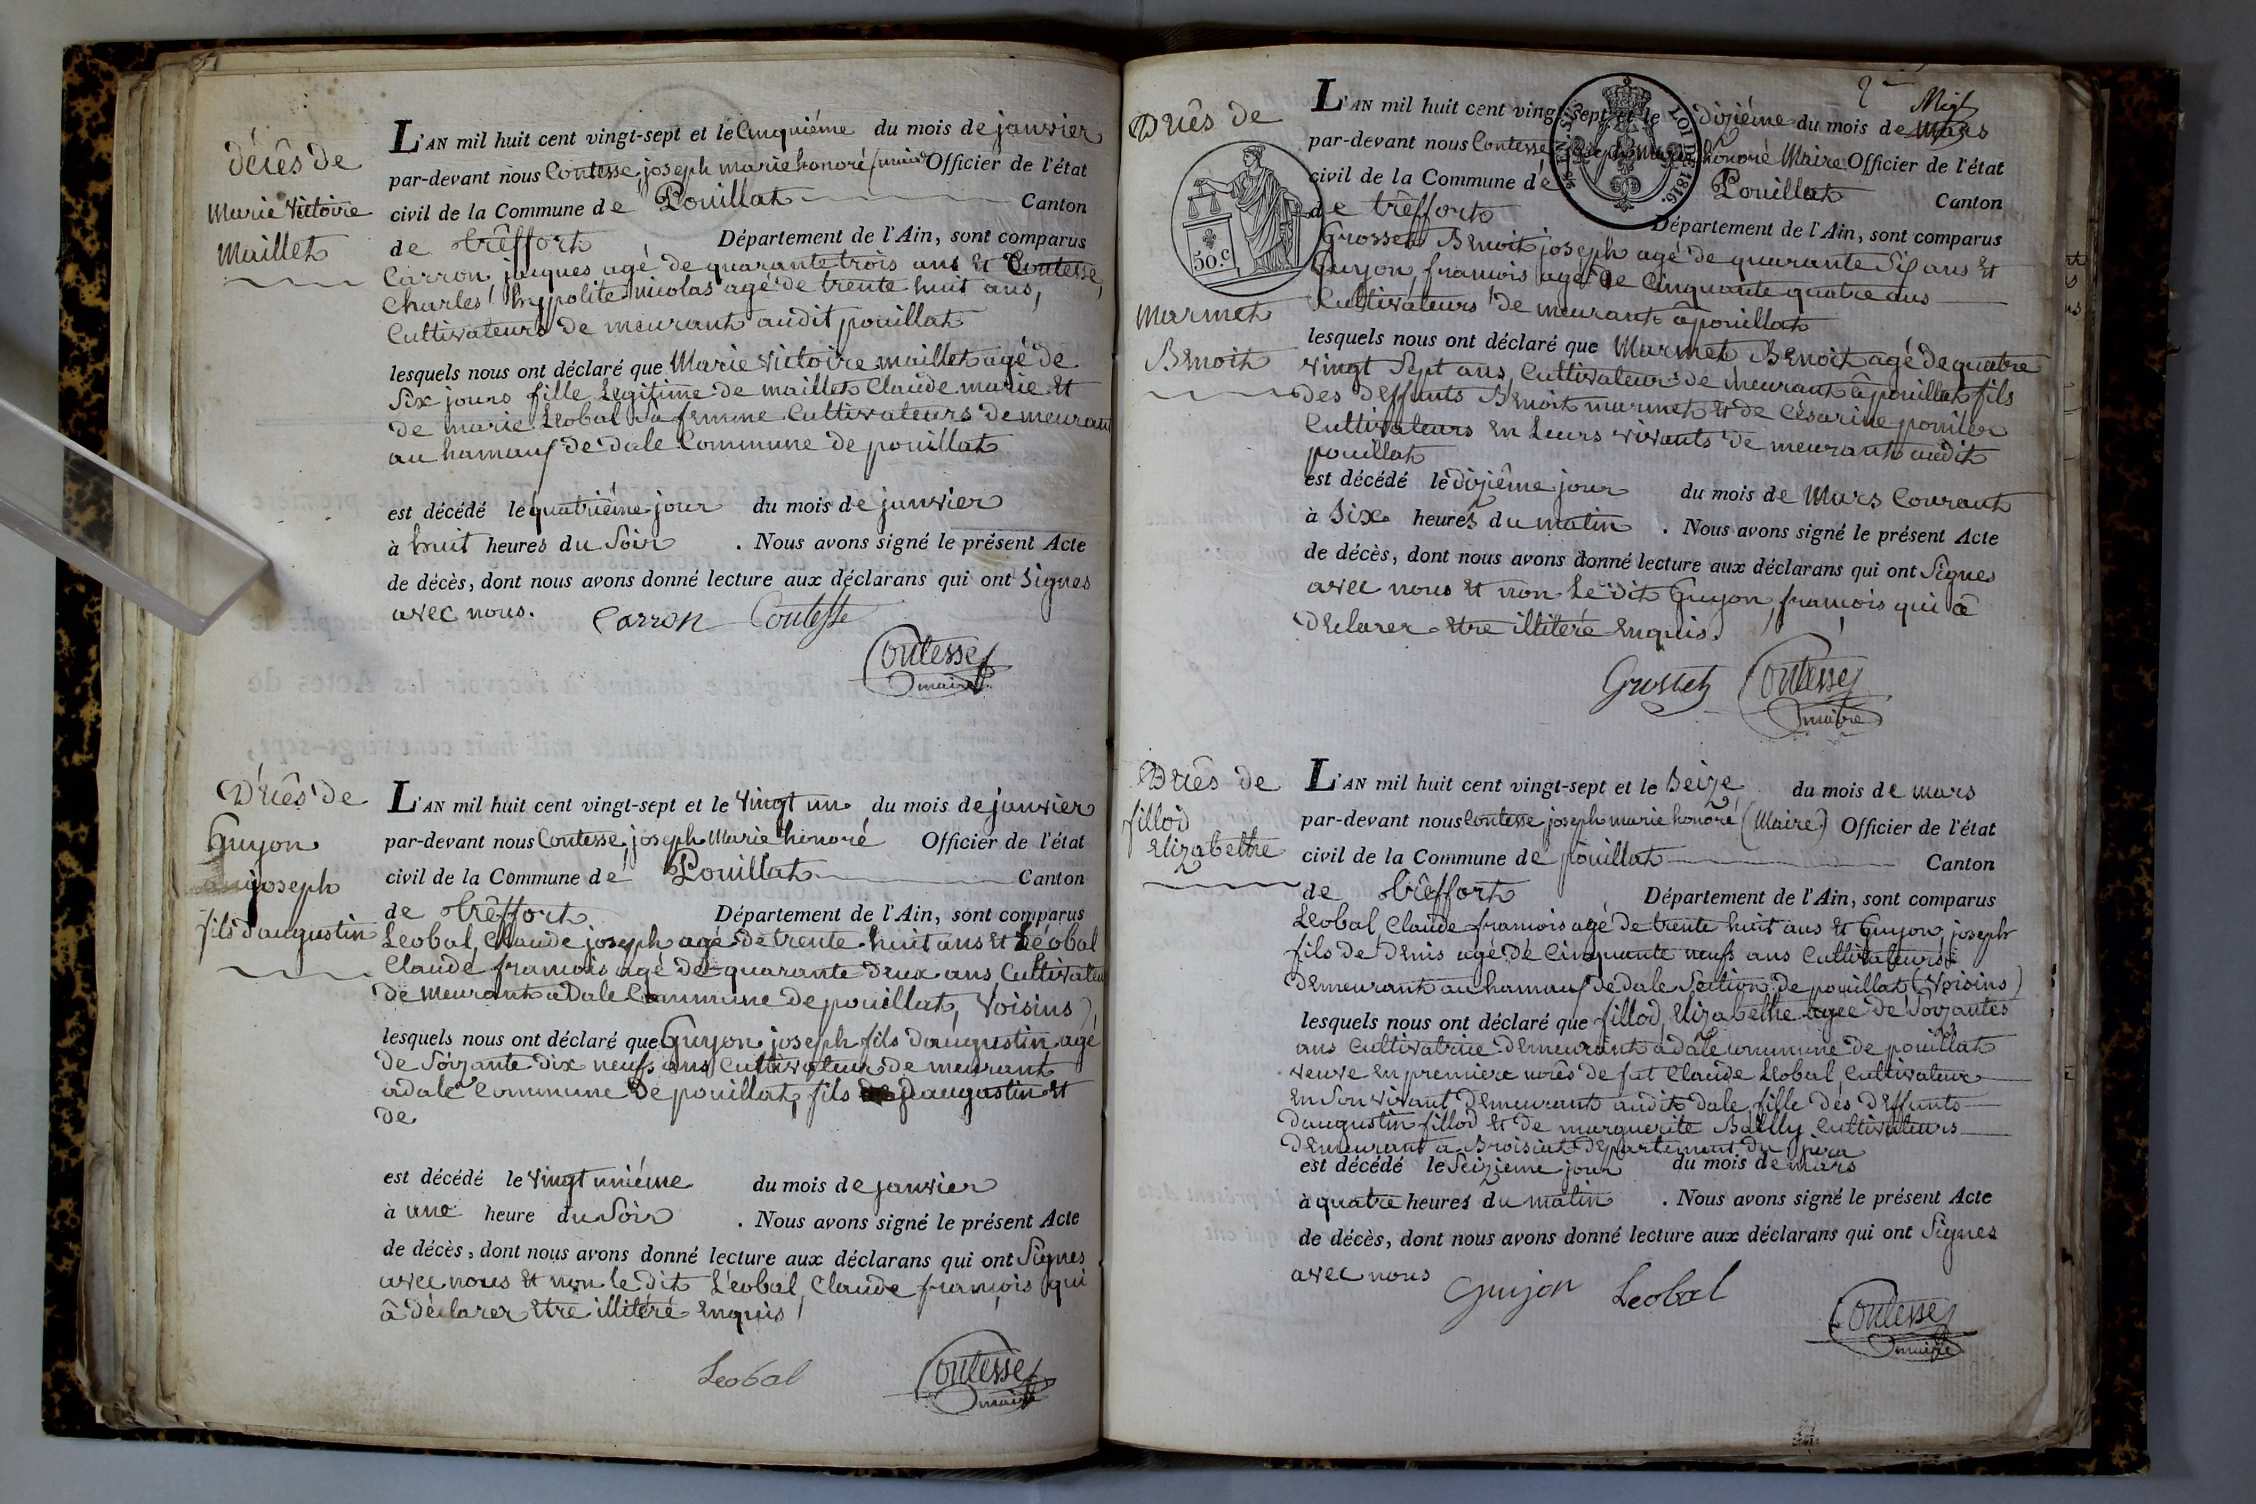 décês de
Marie Victoire
Maillet
L'AN mil huit cent vingt-sept et le Cinquiéme du mois de janvier
par-devant nous Contesse joseph marie honoré (maire) Officier de l'état
civil de la Commune de Pouillat Canton
de trêffort Département de l'Ain, sont comparus
Carron jacques agé de quarante trois ans et Contesse,
Charles hyppolite nicolas agé de trente huit ans,
Cultivateurs de meurant audit pouillat
lesquels nous ont déclaré que Marie Victoire maillet agé de
Six jours fille Legitime de maillet Claude marie et
de marie Léobal sa femme Cultivateurs de meurant
au hamau de dale Commune de pouillat
est décédé le quatriéme jour du mois de janvier
à huit heures du Soir . Nous avons signé le présent Acte
de décès, dont nous avons donné lecture aux déclarans qui ont Signes
avec nous. Carron Contesse
Contesse
maire
Décês de
Guyon
joseph
fils daugustin
L'AN mil huit cent vingt-sept et le Vingt un du mois de janvier
par-devant nous Contesse joseph Marie honoré Officier de l'état
civil de la Commune de Pouillat Canton
de trêffort Département de l'Ain, sont comparus
Léobal Claude joseph agé de trente huit ans et Léobal
Claude francois agé de quarante deux ans Cultivateur
de meurant a Dale Commune de pouillat, Voisins),
lesquels nous ont déclaré que Guyon joseph fils daugustin agé
de Soizante dix neuf ans Cultivateur de meurant
a dale Commune de pouillat, fils daugustin et
de
est décédé le Vingt uniéme du mois de janvier
à une heure du Soir . Nous avons signé le présent Acte
de décès, dont nous avons donné lecture aux déclarans qui ont Signes
avec nous et non le dit Léobal Claude francois qui
â déclarer etre illitéré enquis
Leobal Contesse
maire
2
Décês de
Marmet
Benoit
50.c
LOI DE 1816.
L'AN mil huit cent vingt-sept et le dixiéme du mois de Mars
par-devant nous Contesse joseph marie honoré Maire Officier de l'état
civil de la Commune de Pouillat Canton
de trêffort Département de l'Ain, sont comparus
Grosset Benoit joseph agé de quarante Six ans et
Guyon francois agé de Cinquante quatre ans
Cultivateurs de meurant â pouillat
lesquels nous ont déclaré que Marmet Benoit agé de quatre
vingt Sept ans Cultivateur de meurant â pouillat fils
des deffunts Benoit marmet et de Césarine
Cultivateurs en Leurs vivants de meurant audit
pouillat
est décédé le dixiême jour du mois de Mars Courant
à Six heures du matin . Nous avons signé le présent Acte
de décès, dont nous avons donné lecture aux déclarans qui ont Signes
avec nous et non Le dit Guyon francois qui â
Déclarer etre illitéré enquis.
Grosset Contesse
maire
Décês de
fillod
Elizabethe
L'AN mil huit cent vingt-sept et le Seize du mois de mars
par-devant nous Contesse joseph marie honoré (Maire) Officier de l'état
civil de la Commune de pouillat Canton
de trêffort Département de l'Ain, sont comparus
Léobal Claude francois agé de trente huit ans et Guyon joseph
fils de Denis agé de Cinquante neuf ans Cultivateurs
Demeurant au hamau de dale Section de pouillat (Voisins)
lesquels nous ont déclaré que fillod Elizabethe agee de Soizantes
ans Cultivatrice Demeurant a dale commune de pouillat
veuve en premiere noces de fut Claude Léobal Cultivateur
en Son vivant Demeurant audit dale fille des deffunts
daugustin fillod et de marguerite Bailly Cultivateurs
Demeurant a Broisiat Département du jura
est décédé le Seizieme jour du mois de mars
à quatre heures du matin . Nous avons signé le présent Acte
de décès, dont nous avons donné lecture aux déclarans qui ont Signes
avec nous Guyon Leobal
Contesse
maire